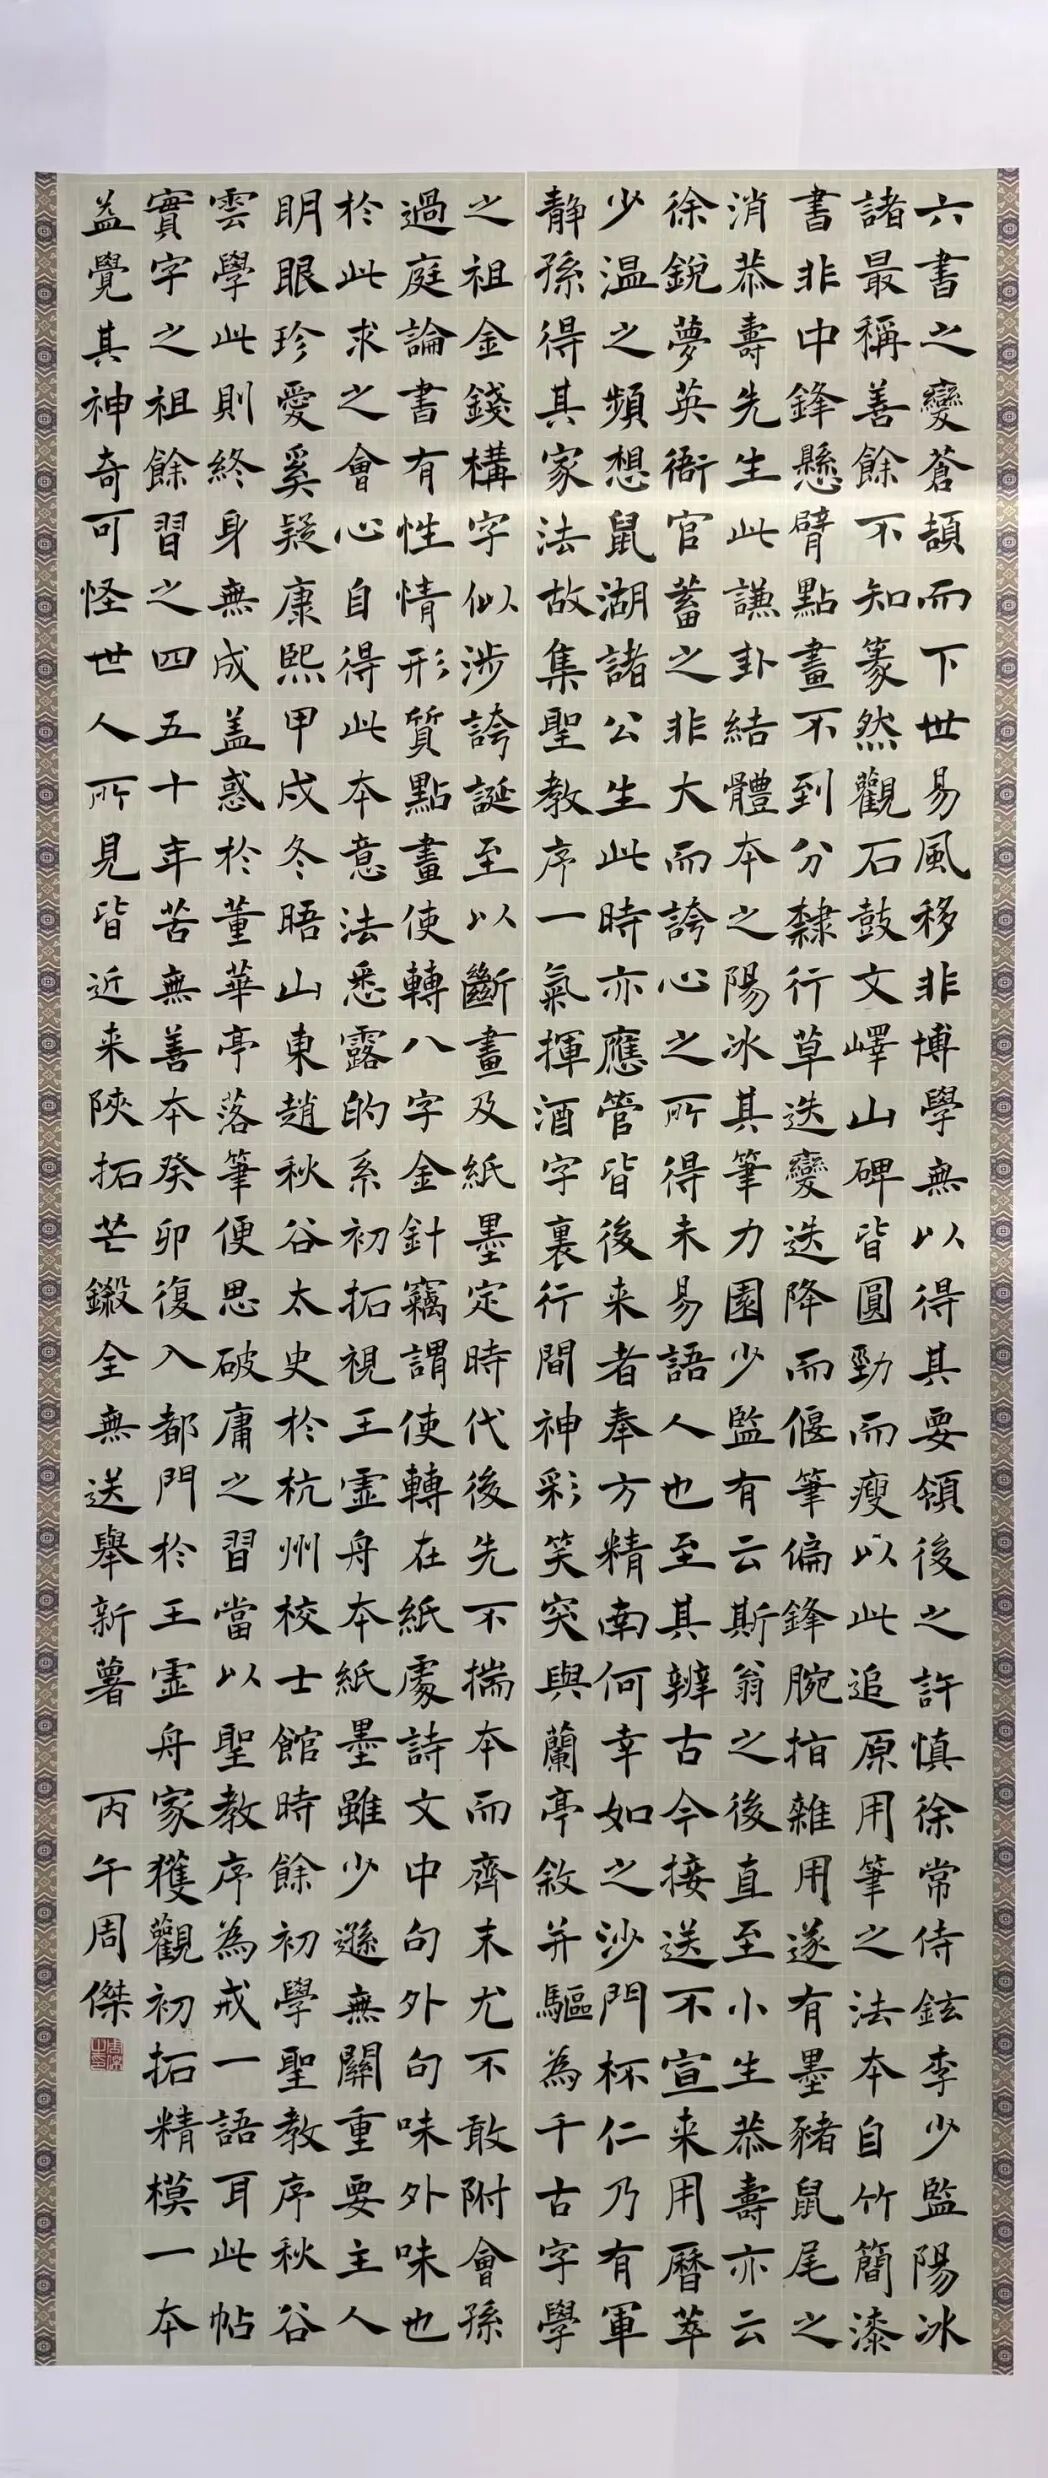 六書之變蒼頡而下世易風移非博學無以得其要領後之許慎徐常侍鉉李少監陽冰
諸最稱善餘不知篆然觀石鼓文嶧山碑皆圓勁而瘦以此追原用筆之法本自竹簡漆
書非中鋒懸臂點畫不到分隸行草迭變迭降而偃筆偏鋒腕指雜用遂有墨豬鼠尾之
消恭壽先生此謙卦結體本之陽冰其筆力園少監有云斯翁之後直至小生恭壽亦云
徐銳夢英衙官蓄之非大而誇心之所得未易語人也至其辨古今接送不宣来用曆萃
少温之頻想鼠湖諸公生此時亦應管皆後来者奉方精南何幸如之沙門杯仁乃有軍
静孫得其家法故集聖教序一氣揮酒字裏行間神彩笑突與蘭亭敘并驅為千古字學
之祖金錢構字似涉誇誕至以斷畫及紙墨定時代後先不揣本而齊末尤不敢附會孫
過庭論書有性情形質點畫使轉八字金針竊謂使轉在紙處詩文中句外句味外味也
於此求之會心自得此本意法悉露的系初拓視王虛舟本紙墨雖少遜無關重要主人
明眼珍愛奚疑康熙甲戌冬晤山東趙秋谷太史於杭州校士館時餘初學聖教序秋谷
雲學此則終身無成盖惑於董華亭落筆便思破庸之習當以聖教序為戒一語耳此帖
實字之祖餘習之四五十年苦無善本癸卯復入都門於王虛舟家獲觀初拓精模一本
益覺其神奇可怪世人所見皆近来陝拓芒鎩全無送舉新署 丙午周傑